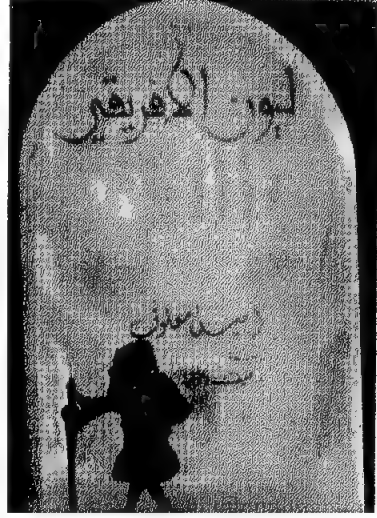 ليون الأفريقي
أمين معلوف